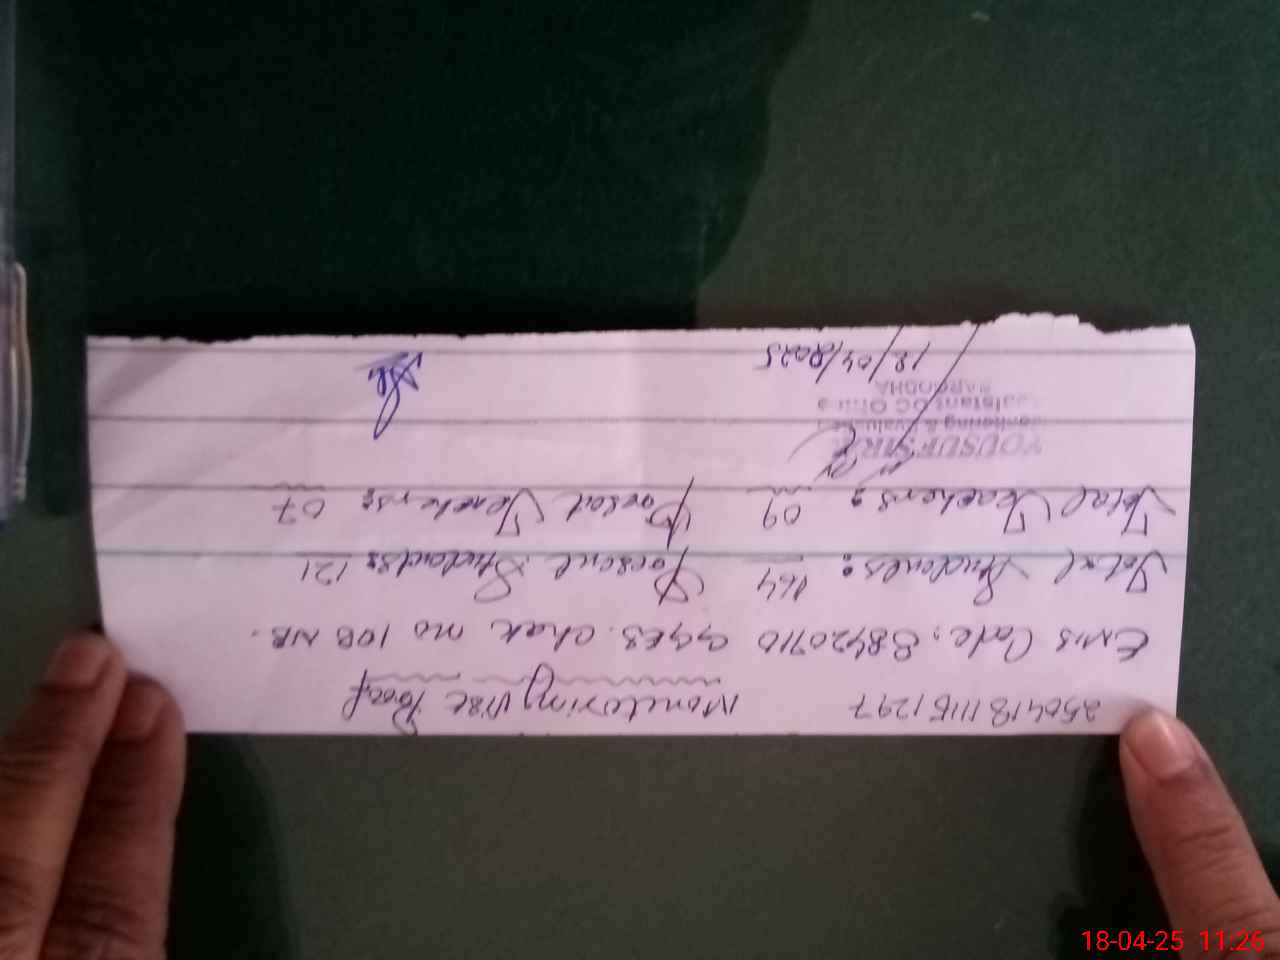 250418 1115 1297 Monitoring Vise Proof
EMIS Code: 38420710 GGES. Chak no 108 NB.
Total Students: 164 Present Students: 121
Total Teachers: 09 Present Teachers: 07
YOUSUF
Monitoring & Evaluation
Assistant DC Office
SARGODHA
18/04/2025
18-04-25 11:26